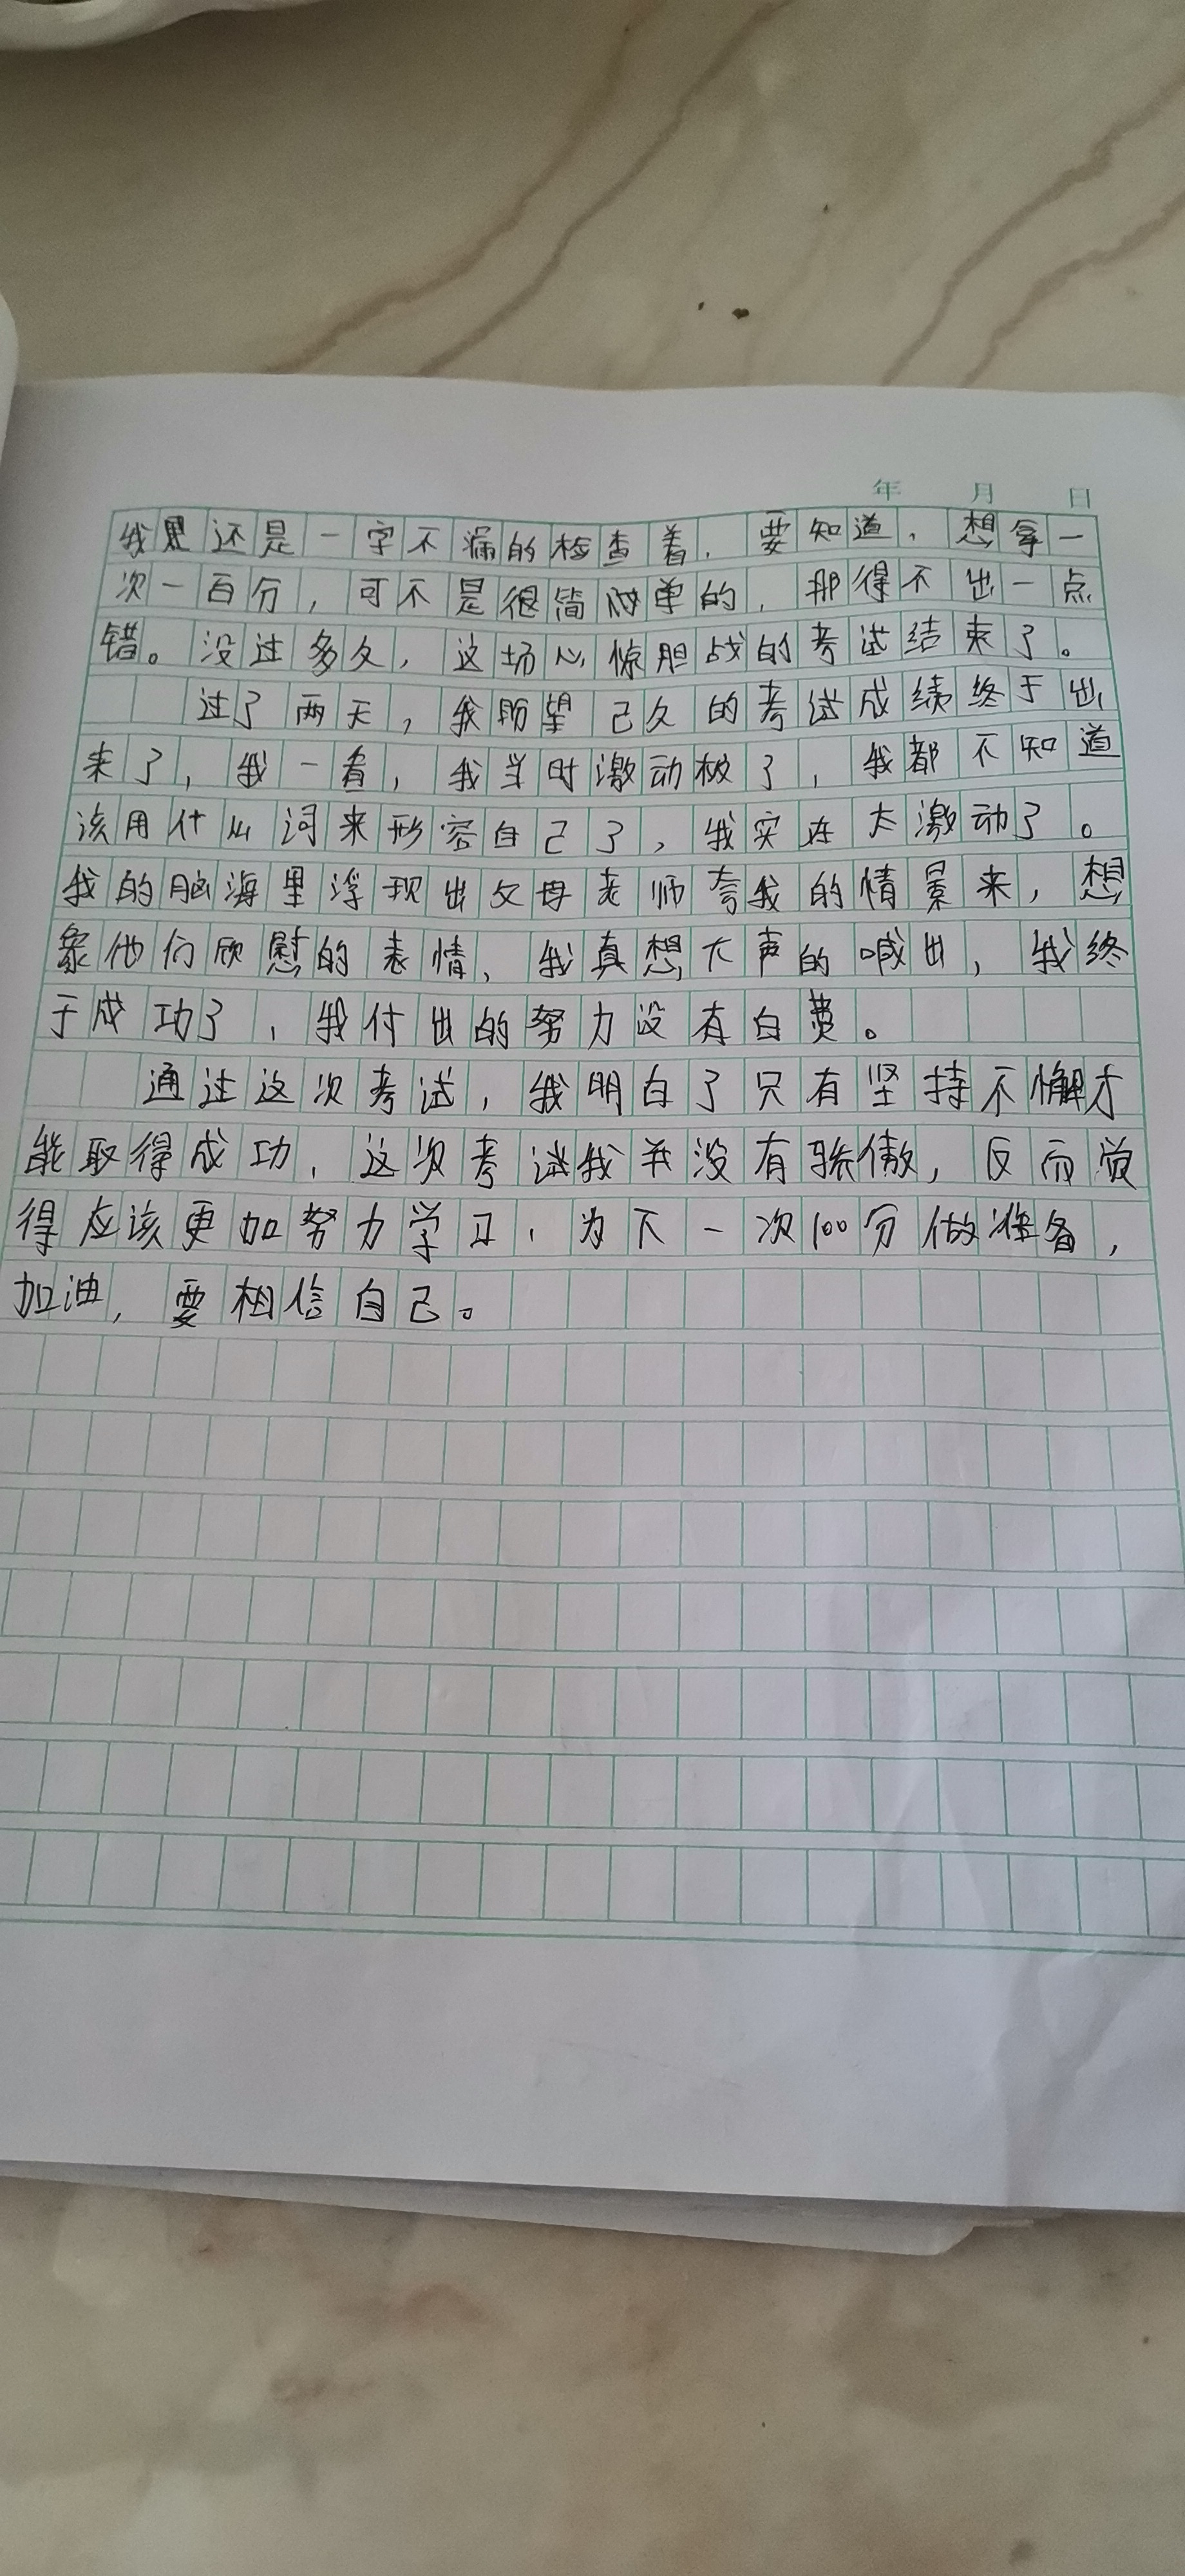 年 月 日
我还是一字不漏的检查着，要知道，想拿一
次一百分，可不是很简单的，那得不出一点
错。没过多久，这场心惊胆战的考试结束了。
过了两天，我盼望已久的考试成绩终于出
来了，我一看，我当时激动极了，我都不知道
该用什么词来形容自己了，我实在太激动了。
我的脑海里浮现出父母老师夸我的情景来，想
象他们欣慰的表情，我真想大声的喊出，我终
于成功了，我付出的努力没有白费。
通过这次考试，我明白了只有坚持不懈才
能取得成功，这次考试我并没有骄傲，反而觉
得应该更加努力学习，为下一次100分做准备，
加油，要相信自己。